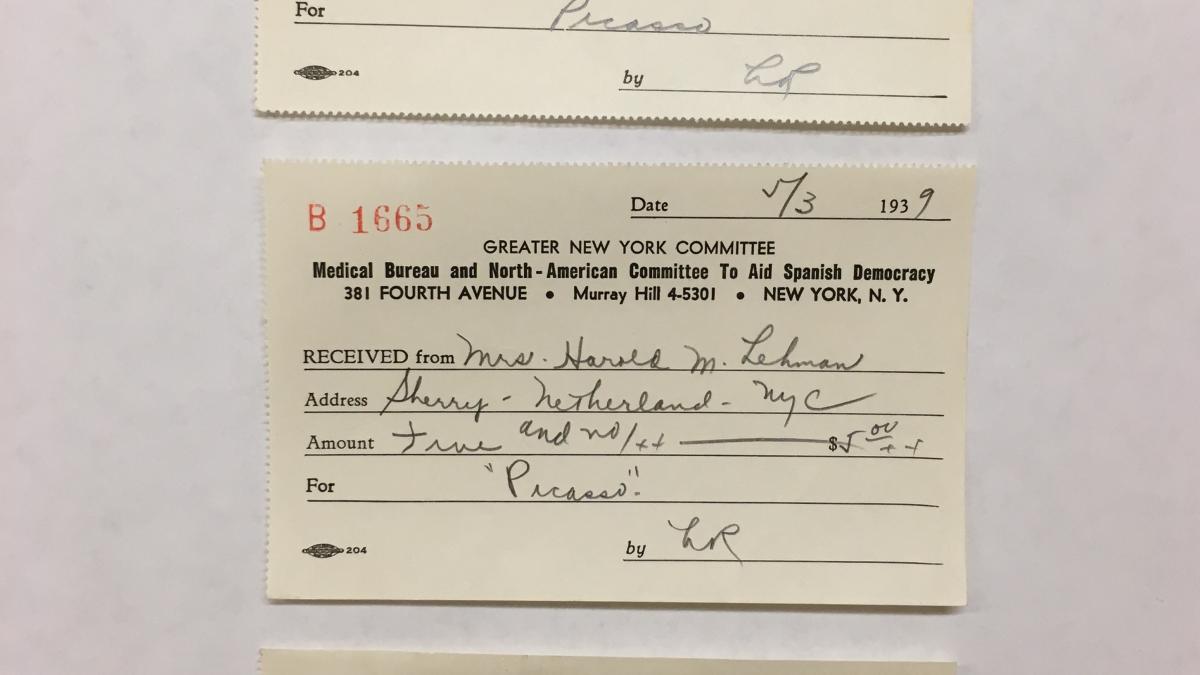 For Picasso
204 by LR
Date 5/3 1939
B 1665
GREATER NEW YORK COMMITTEE
Medical Bureau and North-American Committee To Aid Spanish Democracy
381 FOURTH AVENUE • Murray Hill 4-5301 • NEW YORK, N. Y.
RECEIVED from Mrs. Harold M. Lehman
Address Sherry - Netherland - NYC
Amount Five and no/xx $5 00/xx
For "Picasso".
204 by LR